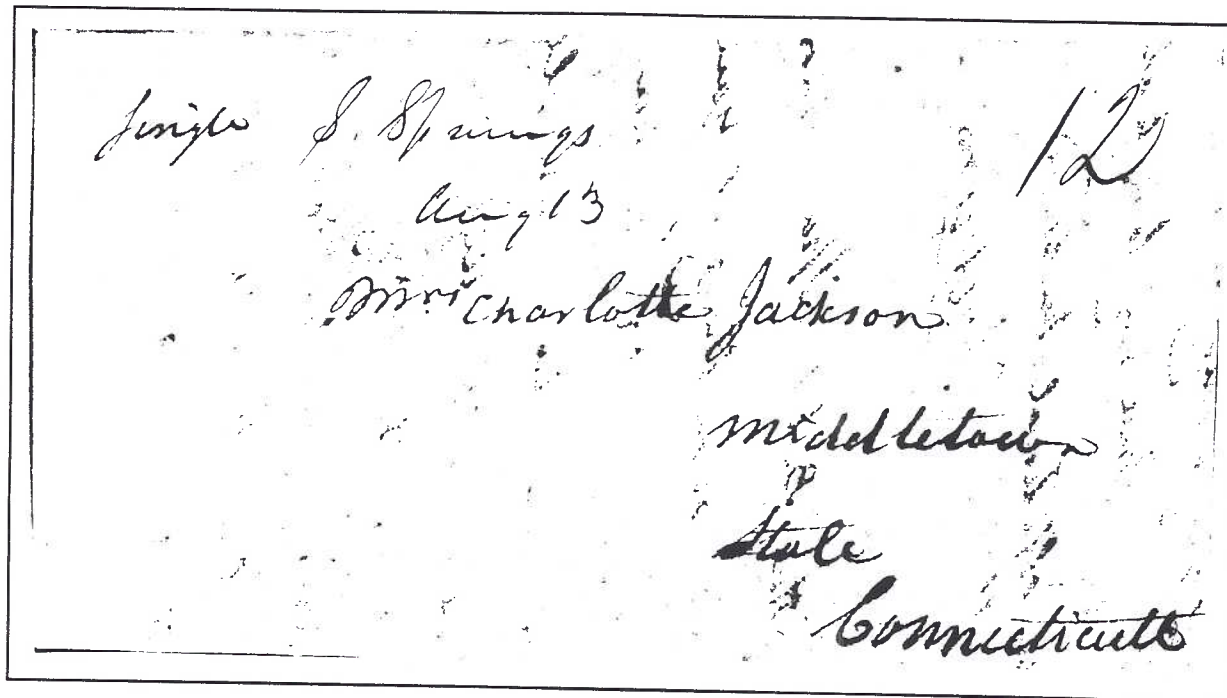 Single S. Springs 12
Aug 13
Miss Charlotte Jackson
Middletown
State
Connecticutt